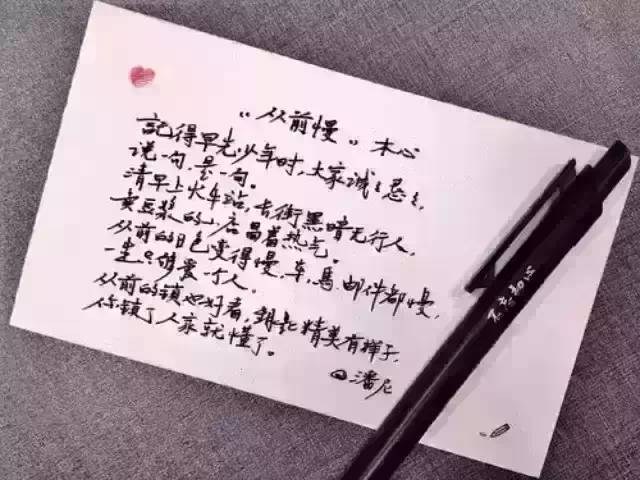 “从前慢”木心
記得早先少年时,大家诚诚恳恳,
说一句,是一句。
清早上火车站,长街黑暗无行人,
卖豆浆的小店冒着热气。
从前的日色变得慢,车、馬、邮件都慢,
一生只够爱一个人。
从前的锁也好看,鑰匙精美有样子,
你锁了人家就懂了。
潘尼
不忘初心